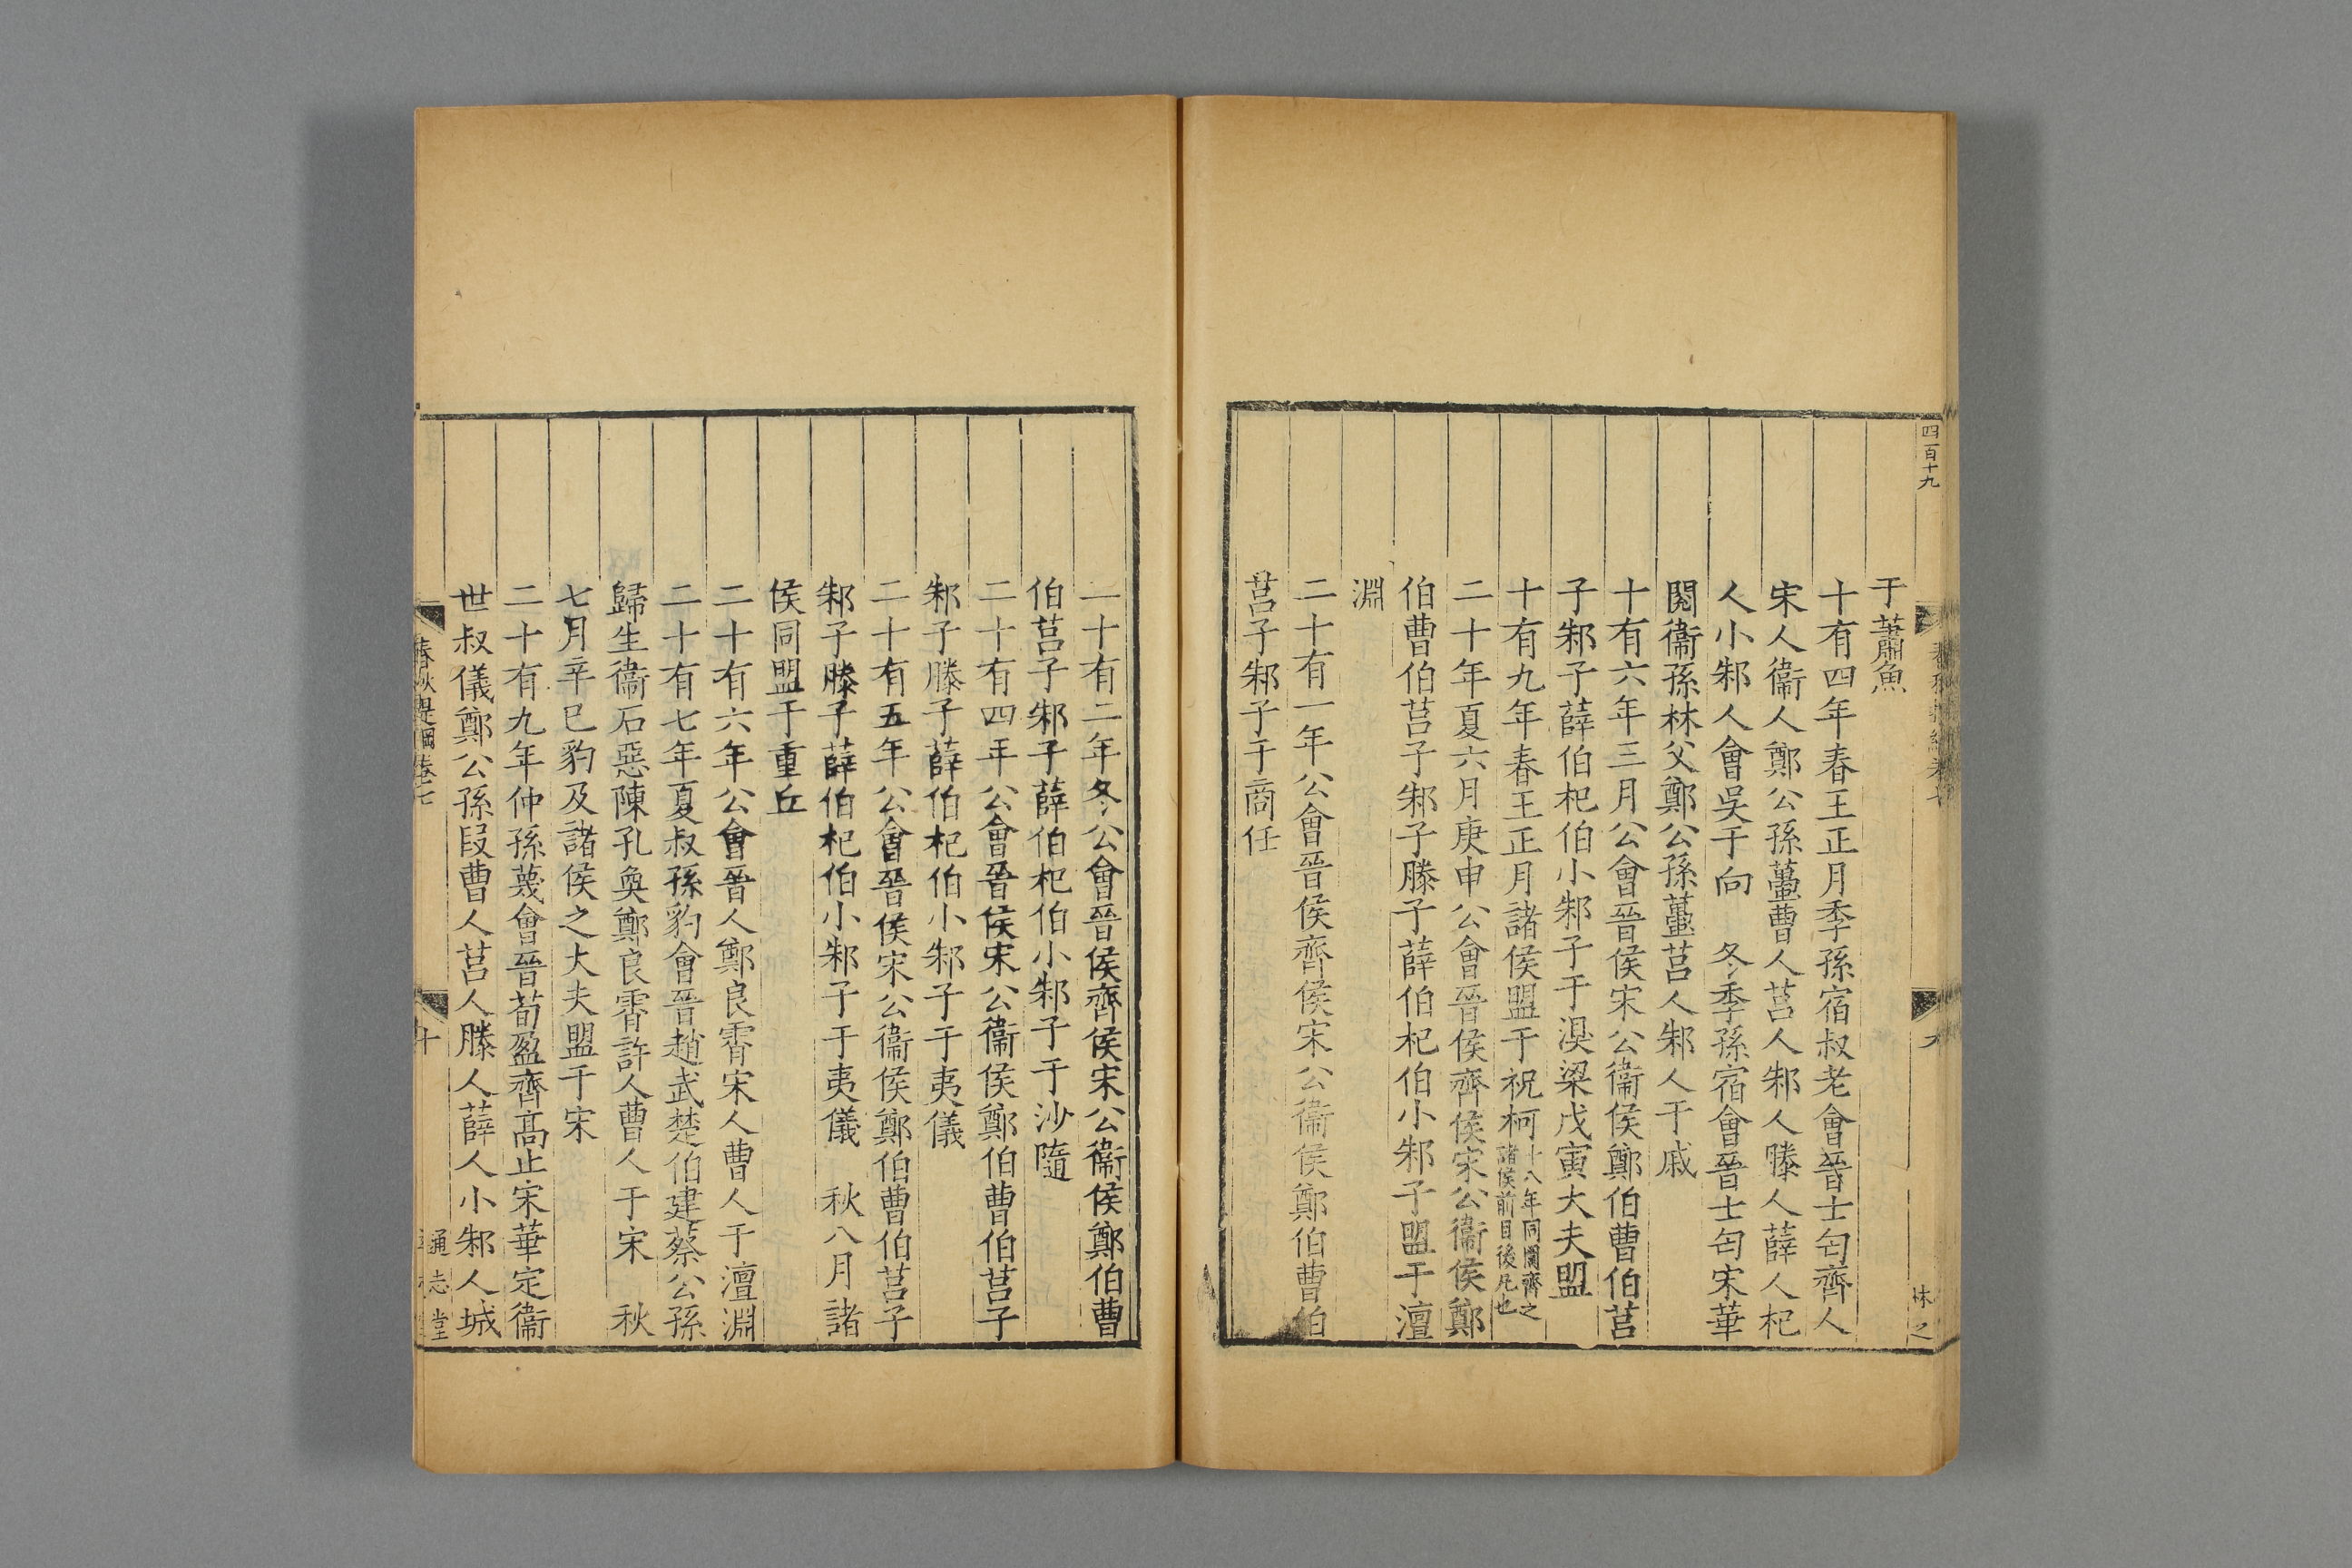 四百十九
于蕭魚
十有四年春王正月季孫宿叔老會晉士匄齊人
宋人衞人鄭公孫蠆曹人莒人邾人滕人薛人杞
人小邾人會吳于向　冬季孫宿會晉士匄宋華
閱衞孫林父鄭公孫蠆莒人邾人于戚
十有六年三月公會晉侯宋公衞侯鄭伯曹伯莒
子邾子薛伯杞伯小邾子于湨梁戊寅大夫盟
十有九年春王正月諸侯盟于祝柯十八年同圍齊之
諸侯前目後凡也
二十年夏六月庚申公會晉侯齊侯宋公衞侯鄭
伯曹伯莒子邾子滕子薛伯杞伯小邾子盟于澶
淵
二十有一年公會晉侯齊侯宋公衞侯鄭伯曹伯
莒子邾子于商任
二十有二年冬公會晉侯齊侯宋公衞侯鄭伯曹
伯莒子邾子薛伯杞伯小邾子于沙隨
二十有四年公會晉侯宋公衞侯鄭伯曹伯莒子
邾子滕子薛伯杞伯小邾子于夷儀
二十有五年公會晉侯宋公衞侯鄭伯曹伯莒子
邾子滕子薛伯杞伯小邾子于夷儀　秋八月諸
侯同盟于重丘
二十有六年公會晉人鄭良霄宋人曹人于澶淵
二十有七年夏叔孫豹會晉趙武楚伯建蔡公孫
歸生衞石惡陳孔奐鄭良霄許人曹人于宋　秋
七月辛巳豹及諸侯之大夫盟于宋
二十有九年仲孫蔑會晉荀盈齊高止宋華定衞
世叔儀鄭公孫段曹人莒人滕人薛人小邾人城
春秋提綱卷七
十
通志堂